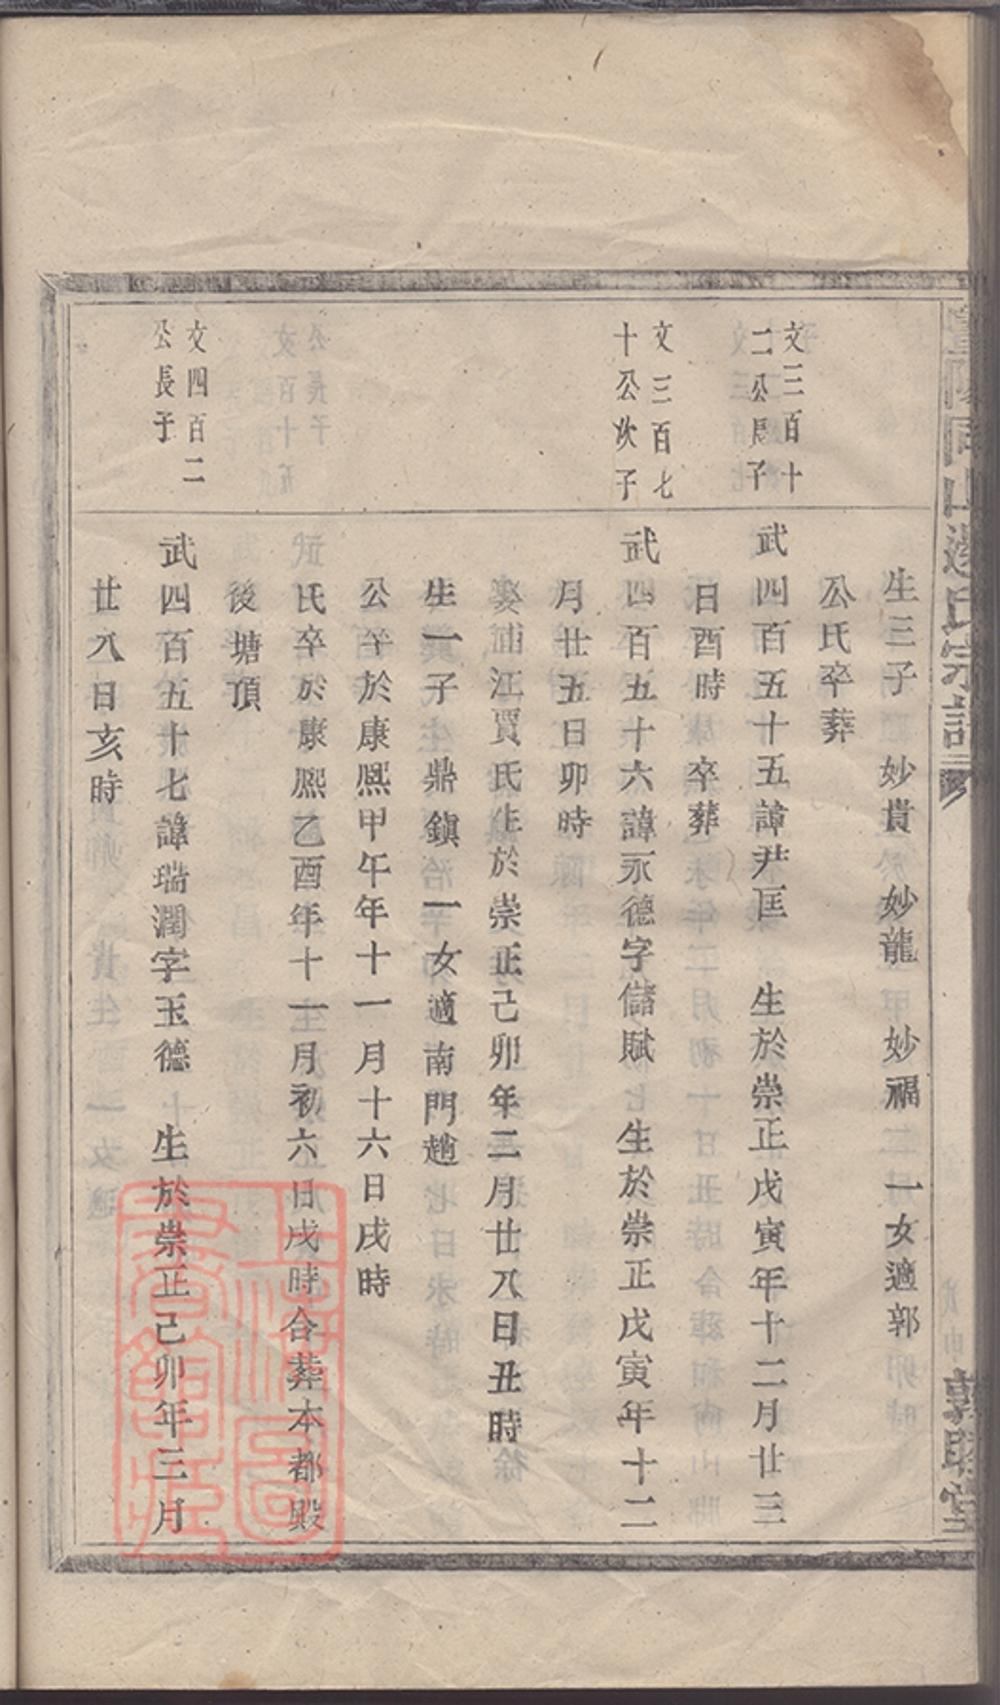 生三子 妙貴 妙龍 妙福 一女適郭
公氏卒葬
文三百十
二公長子
武四百五十五諱尹匡 生於崇正戊寅年十二月廿三
日酉時 卒葬
文三百七
十公次子
武四百五十六諱永德字儲賦 生於崇正戊寅年十二
月廿五日卯時
娶浦江賈氏生於崇正己卯年二月廿八日丑時
生一子 鼎鎮 一女適南門趙
公卒於康熙甲午年十一月十六日戌時
氏卒於康熙乙酉年十一月初六日戌時合葬本都殿
後塘頂
文四百二
公長子
武四百五十七諱瑞潤字玉德 生於崇正己卯年三月
廿八日亥時
敦睦堂
上海圖
書館藏